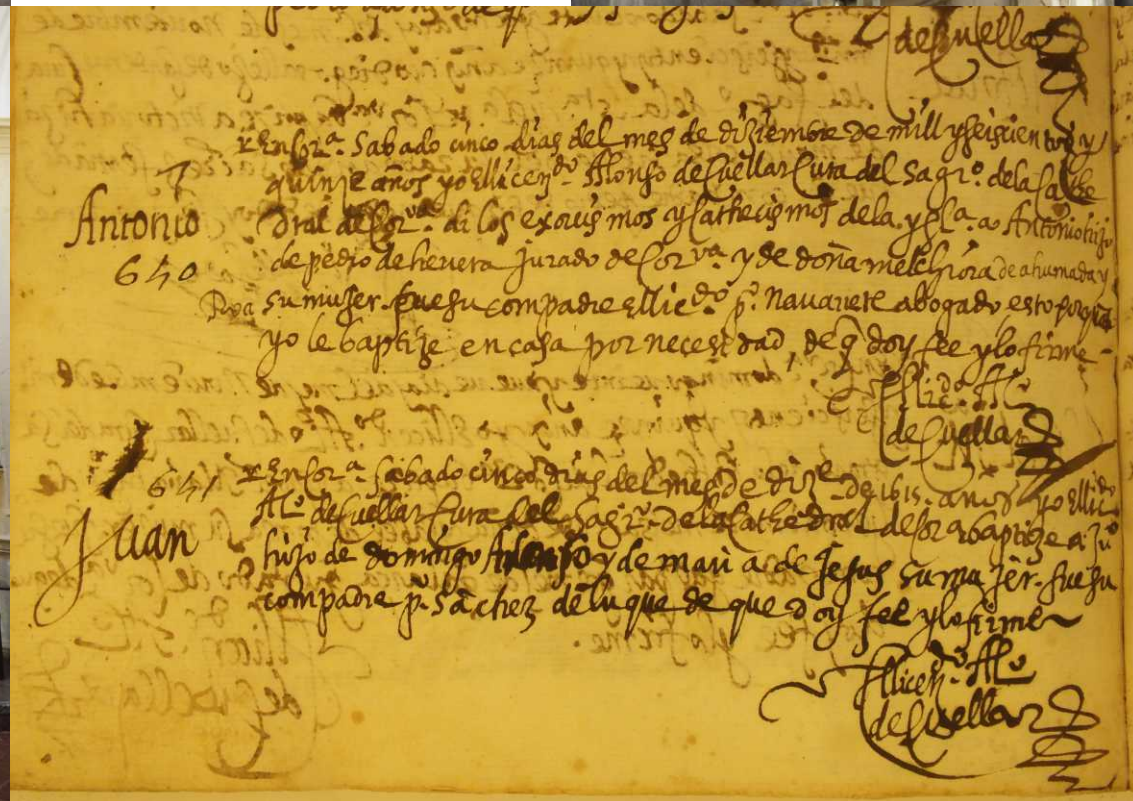 de Cuellar
Antonio
640
En Cor.ª Sabado cinco dias del mes de diziembre de mill y seiscientos y
quinze años yo El licen.do Alonso de Cuellar Cura del Sagr.º de la Cathe
dral de Cor.va di los exorcismos y cathecismos de la ygl.ª a Antonio hijo
de pedro de herrera Jurado de Cor.va y de doña melchiora de ahumada y
su mujer. fue su compadre El lic.do p.º Navarrete abogado esto porque
yo le baptize en casa por necesidad, de q doy fee y lo firme
El lic.do Al.º
de Cuellar
641
Juan
En Cor.ª Sabado cinco dias del mes de diz.e de 1615. años yo El lic.do
Al.º de Cuellar Cura del Sagr.º de la Cathedral de Cor.ª baptize a Ju.º
hijo de domingo Alonso y de maria de Jesus su mujer. fue su
compadre p.º Sanchez de luque de que doy fee y lo firme
El licen.do Al.º
de Cuellar